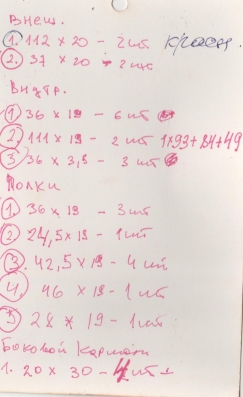 Внеш.
1. 112 x 20 - 2 шт красн.
2. 37 x 20 - 2 шт
Внутр.
1 36 x 19 - 6 шт
2 111 x 19 - 2 шт 1x93+24+49
3 36 x 3,5 - 3 шт
Полки
1. 36 x 19 - 3 шт
2 24,5 x 19 - 1 шт
3. 42,5 x 19 - 4 шт
4. 46 x 19 - 1 шт
5 28 x 19 - 1 шт
Боковой карман
1. 20 x 30 - 4 шт